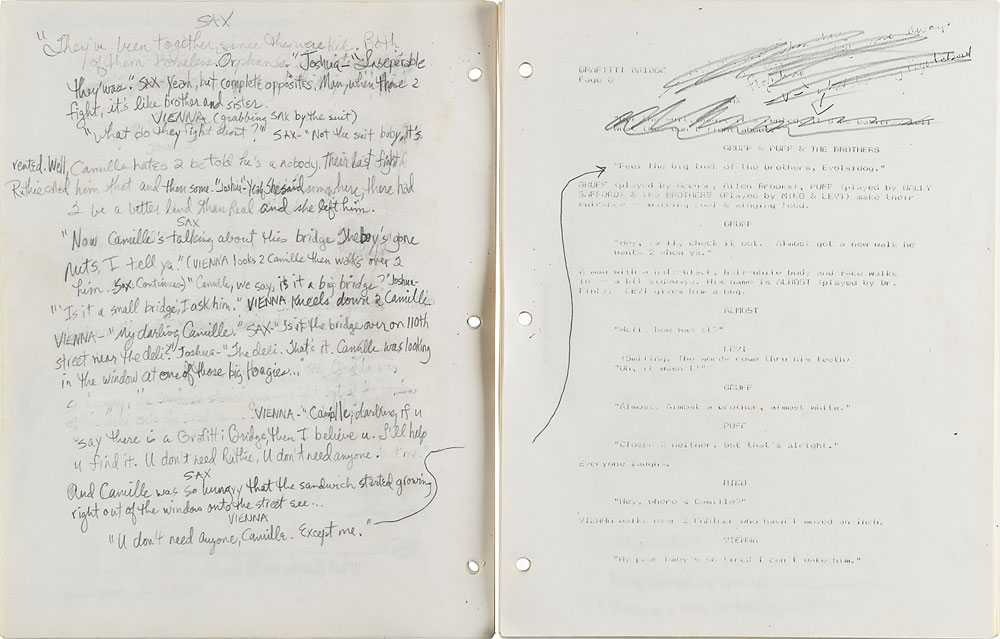 SAX
"They've been together since they were kids. Both
of them homeless. Orphans." Joshua - "Inseperable
they was." SAX - Yeah, but complete opposites, Man, when those 2
fight, it's like brother and sister.
VIENNA (grabbing SAX by the suit)
"What do they fight about?" SAX - "Not the suit baby, it's
rented. Well, Camille hates 2 be told he's a nobody, their last fight
Ruthie called him that and then some." Joshua - "Yeah she said somewhere there had
2 be a better land than Real and she left him.
SAX
"Now Camille's talking about this bridge. The boy's gone
nuts, I tell ya." (VIENNA looks 2 Camille then walks over 2
him. SAX Continues) "Camille, we say, is it a big bridge?" Joshua -
"Is it a small bridge, I ask him." VIENNA kneels down 2 Camille
VIENNA - "My darling Camille." SAX - "Is it the bridge over on 110th
street near the deli?" Joshua - "The deli. That's it. Camille was looking
in the window at one of those big hoagies..."
VIENNA - "Camille, darling, if u
say there is a Grafitti Bridge, then I believe u. I'll help
u find it. U don't need Ruthie, U don't need anyone.
SAX
And Camille was so hungry that the sandwich started growing
right out of the window onto the street see...
VIENNA
"U don't need anyone, Camille. Except me."
GRAFITTI BRIDGE
Page 8
GRUFF & PUFF & THE BROTHERS
"Feel the big love of the brothers, Evolsidog."
GRUFF (played by Gregory Allen Brooks), PUFF (played by WALLY
SAFFORD) & the BROTHERS (Played by MIKO & LEVI) make their
entrance -- walking cool & singing loud.
GRUFF
"Hey, ya'll, check it out. Almost got a new walk he
wants 2 show ya."
A man with a half-black, half-white body and face walks
in -- a bit sideways. His name is ALMOST (played by Dr.
Fink). LEVI gives him a hug.
ALMOST
"Well, how was it?"
LEVI
(Smiling. The words come thru his teeth)
"Uh, it wasn't!"
GRUFF
"Almost. Almost a brother, almost white."
PUFF
"Closer 2 neither, but that's alright."
Everyone laughs.
MIKO
"Hey, where's Camille?"
VIENNA walks over 2 CAMILLE who hasn't moved an inch.
VIENNA
"My poor baby's so tired I can't wake him."